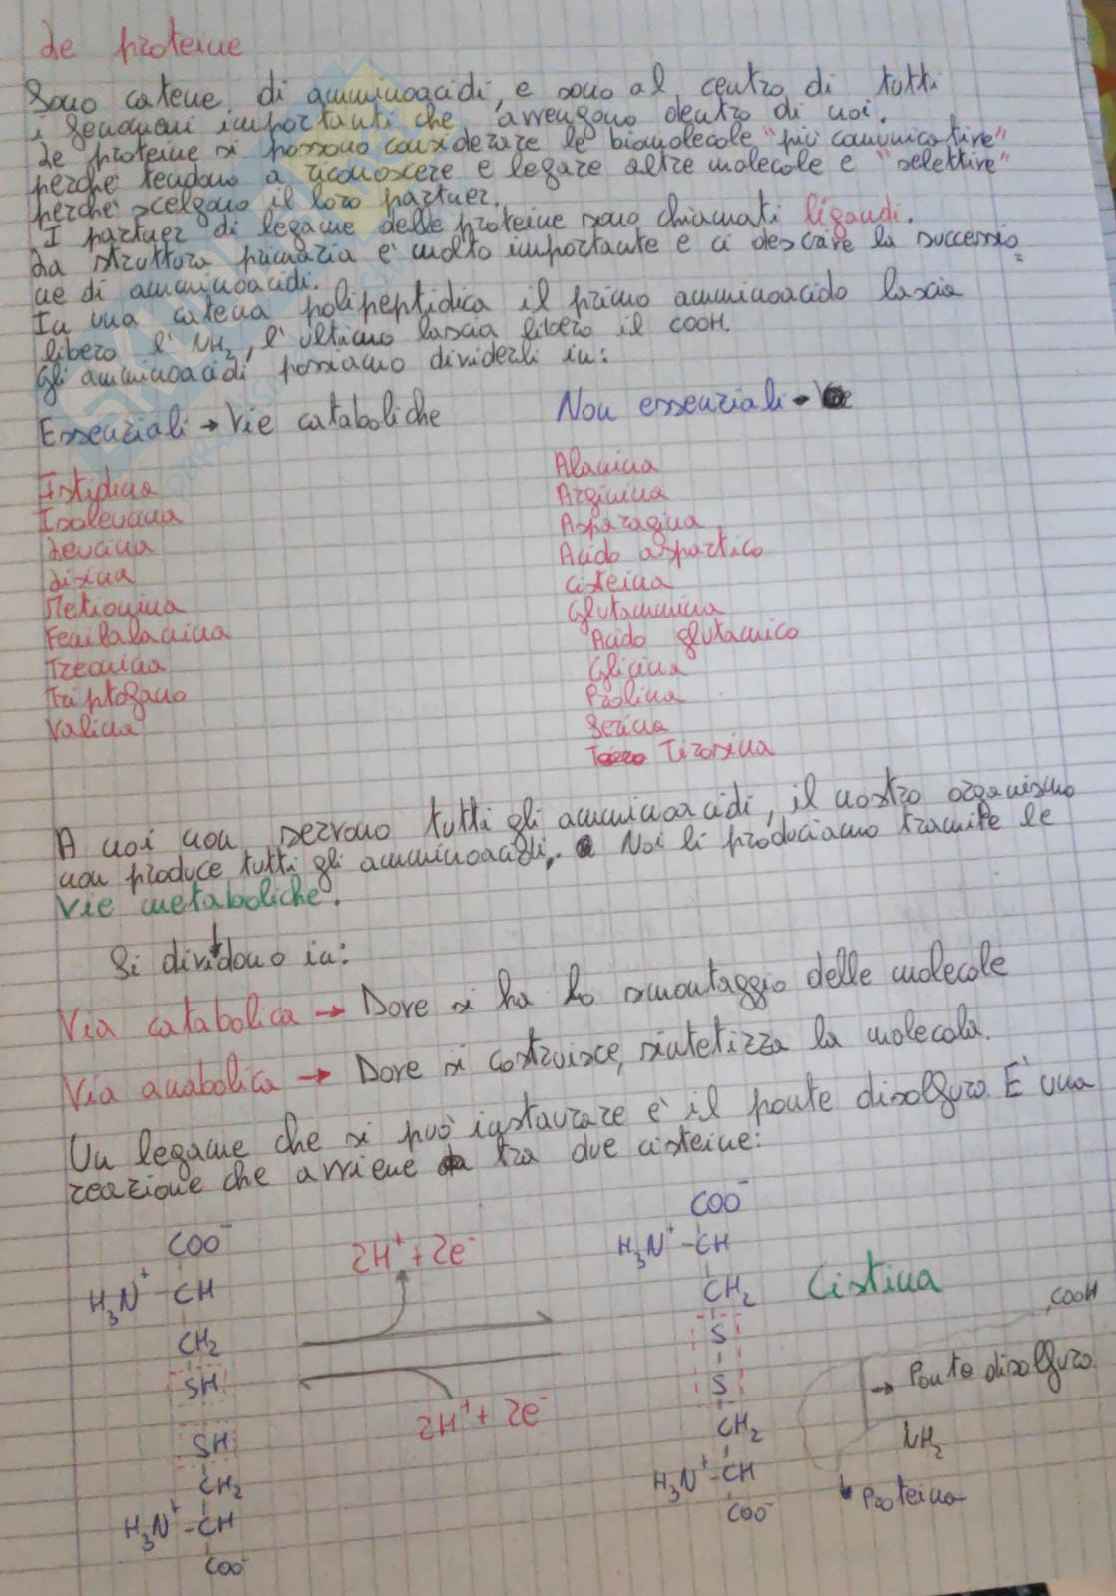 Le proteine
Sono catene di amminoacidi, e sono al centro di tutti
i fenomeni importanti che avvengono dentro di noi.
Le proteine si possono considerare le biomolecole "più comunicative"
perché tendono a riconoscere e legare altre molecole e "selettive"
perché scelgono il loro partner.
I partner di legame delle proteine sono chiamati ligandi.
La struttura primaria è molto importante e ci descrive la successio
ne di amminoacidi.
In una catena polipeptidica il primo amminoacido lascia
libero l'NH2, l'ultimo lascia libero il COOH.
Gli amminoacidi possiamo dividerli in:
Essenziali → Vie cataboliche
Non essenziali →
Istidina
Isoleucina
Leucina
Lisina
Metionina
Fenilalanina
Treonina
Triptofano
Valina
Alanina
Arginina
Asparagina
Acido aspartico
Cisteina
Glutammina
Acido glutamico
Glicina
Prolina
Serina
Tirosina
A noi non servono tutti gli amminoacidi, il nostro organismo
non produce tutti gli amminoacidi. Noi li produciamo tramite le
Vie metaboliche.
Si dividono in:
Via catabolica → Dove si ha lo smontaggio delle molecole
Via anabolica → Dove si costruisce, sintetizza la molecola.
Un legame che si può instaurare è il ponte disolfuro. È una
reazione che avviene tra due cisteine:
COO-
H3N+-CH
CH2
SH
SH
CH2
H3N+-CH
COO-
2H+ + 2e-
2H+ + 2e-
COO-
H3N+-CH
CH2
S
S
CH2
H3N+-CH
COO-
Cistina
COOH
→ Ponte disolfuro
NH2
Proteina